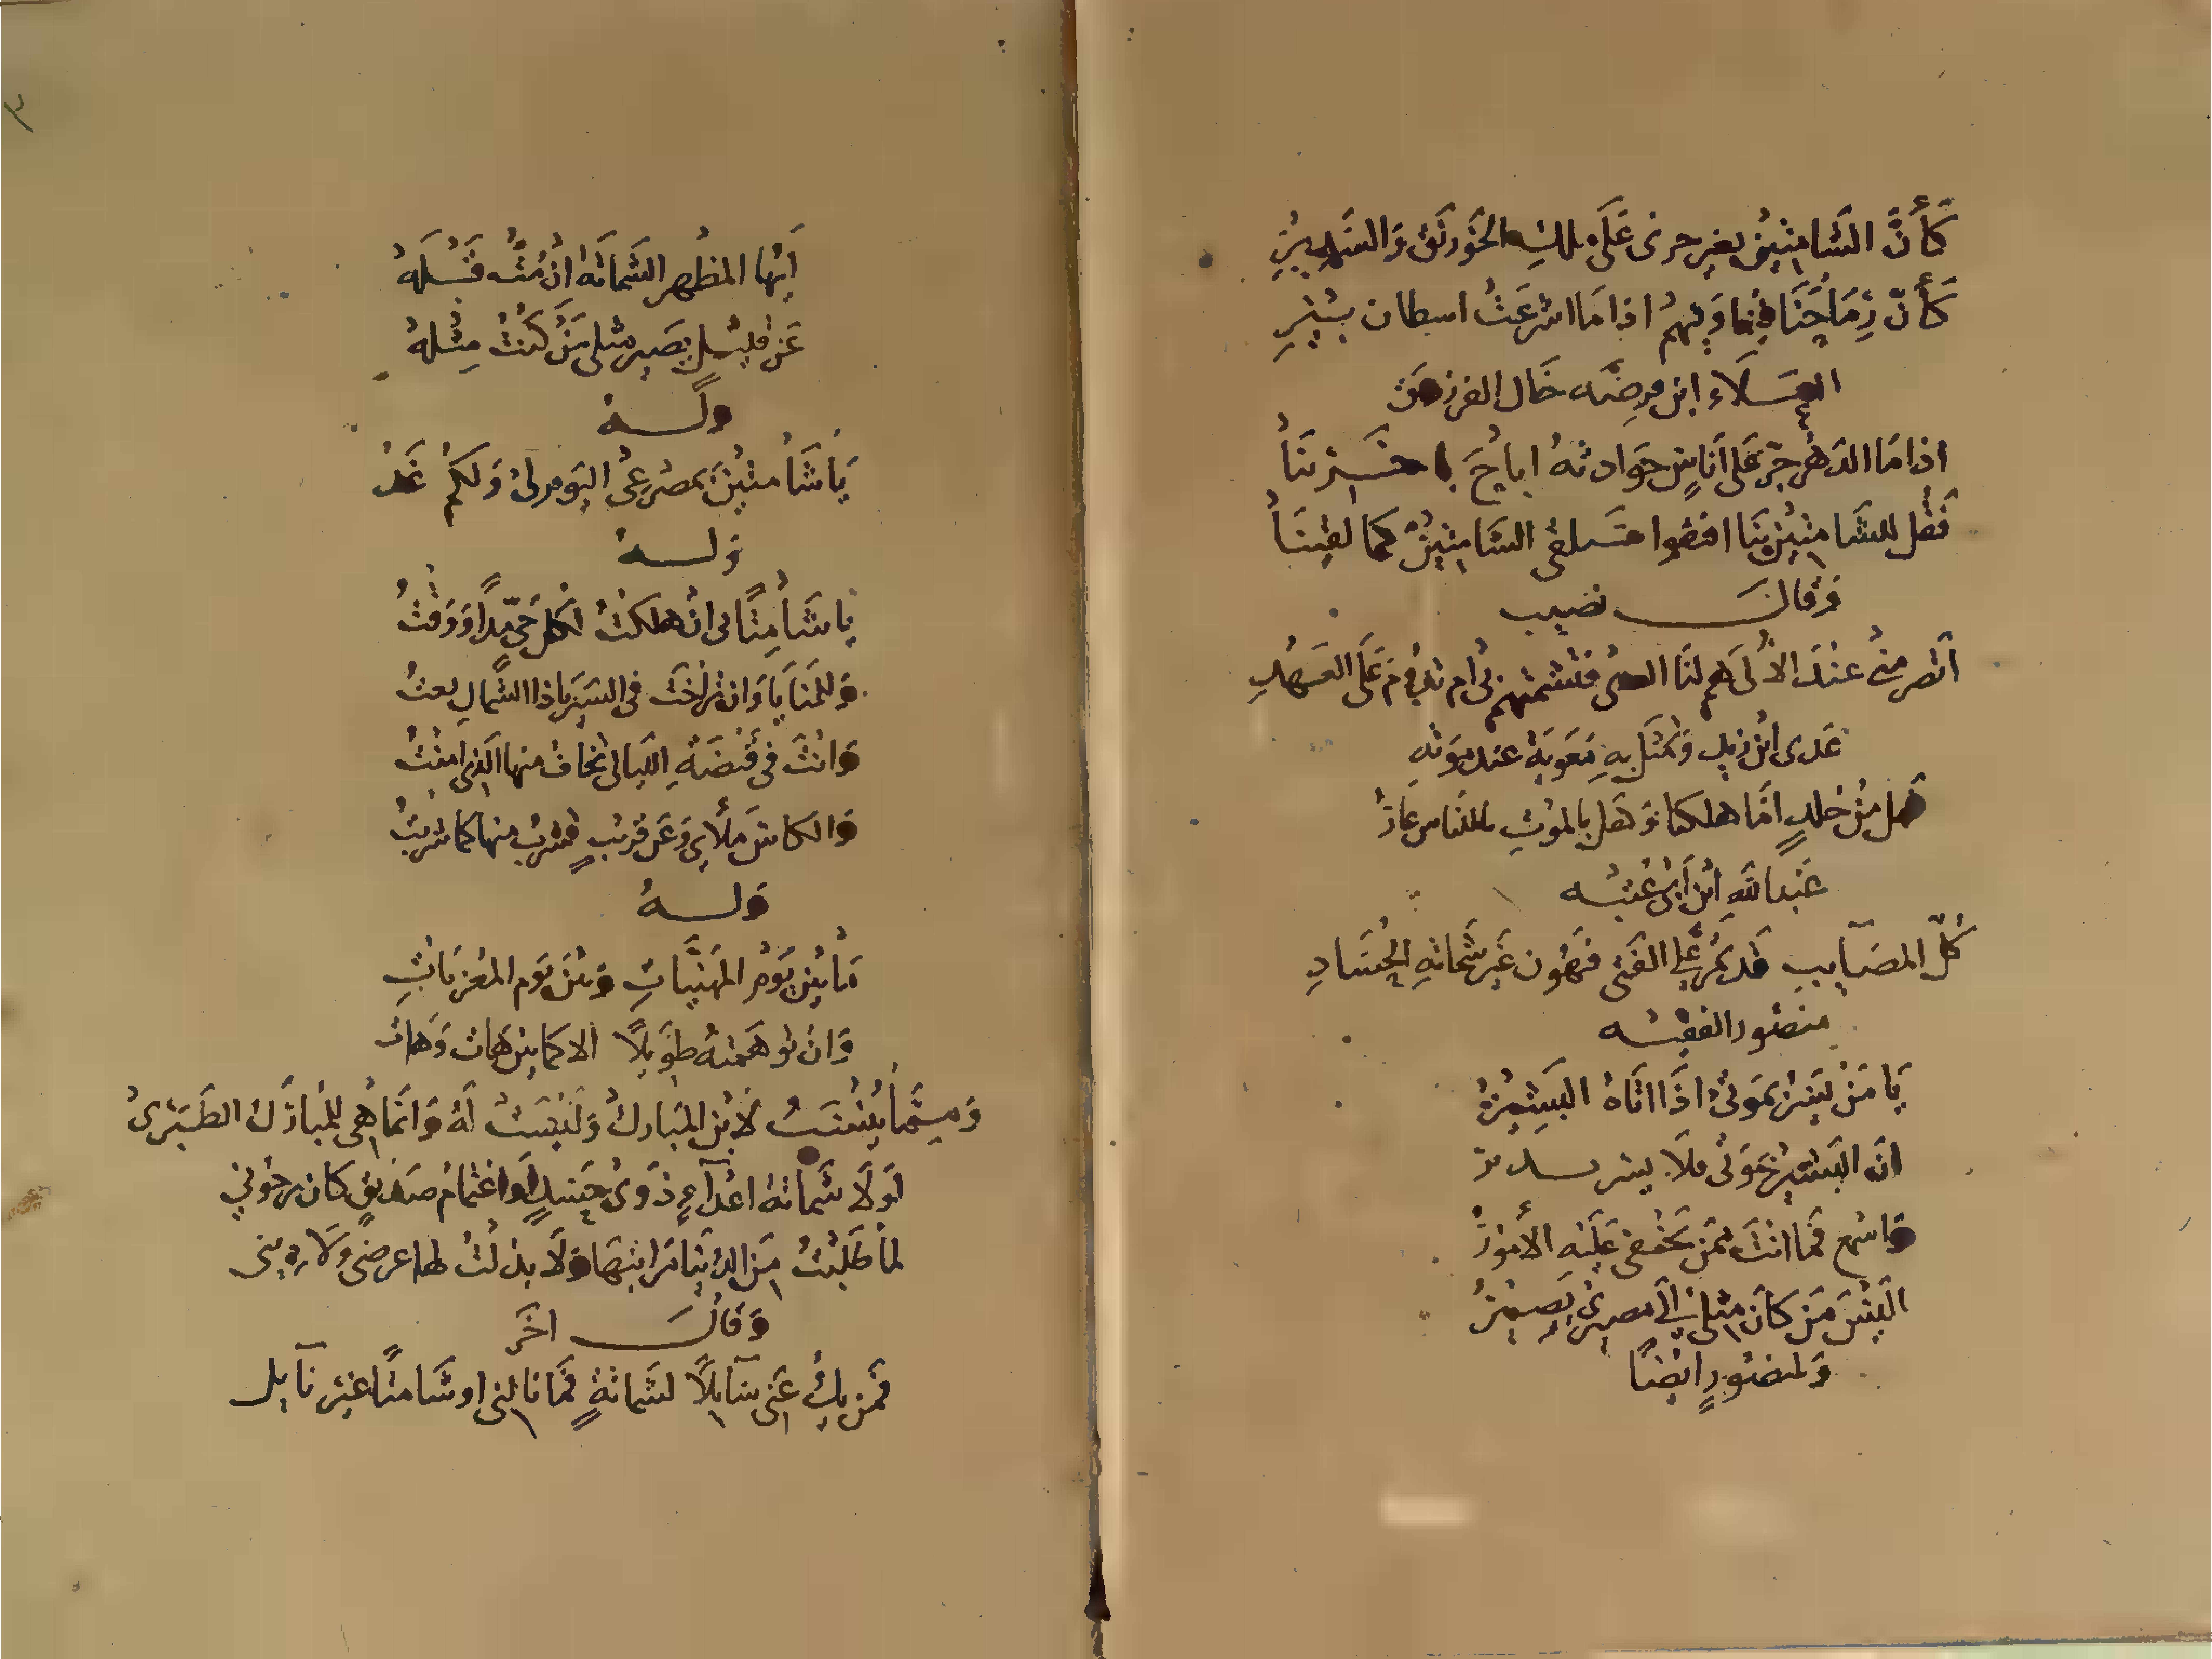 كَأَنَّ الشَّامِتِينَ بغير حرى عَلَى ملكِ الخَوَرنَق وَالسَّدِيرِ
كَأَنّ رِمَاحَنَا فِينَا وَفِيهِمُ اذا مَا اشرعَتْ اسطان بِيْرِ
العَلَاء ابن قرضه خَال الفرزدق
اذا مَا الدَهْر جرّ على اناسٍ حوَادثهُ اناخَ باخرينَا
فَقُل للشَامتِينَ بنَا افيقوا سَيلقى الشَامِتِيْنُ كما لقِينَا
وَقالَ نصيب
عَدى ابْن زيد وَتمثل بهِ معَويَة عند مَوته
فهل مِنْ خلدٍ امّا هلكنا وَهَل بالموتِ للنَاسِ عَارُ
عَبْد اللهِ ابْن أَبي عتبْه
كُلّ المصَآيب قد تَمُرّ عَلى الفَتى فَتهُون غيرَ شَماتهِ الحُسَادِ
منصُور الفقيْه
يَا مَنْ يُسَرّ بمَوتي اذَا اتَاهُ البَشِيْرُ
انّ البَشِيرَ بمَوتي
فاسمع فَما انْتَ ممَن تَخْفى عَليْهِ الأمُورُ
اليْسَ مَن كانَ مثلي الى مصيري يَصِيْرُ
وَلمنصُورٍ ايْضًا
٣
اَيّهَا المظهر الشمَاتَهُ ان مُتُّ قبْلَهُ
عَن قليْلٍ يصَير مثلي مَنْ كُنْتُ مِثْلهُ
وَلَهُ
يَا شَامتِيْنَ بمصْرعِي اليَومر لى وَلكمُ غَدُ
وَلهُ
يا شَامِتًا بى انْ هلكْتُ لكل حَيّ مدًا وَوَقْتُ
وَللمنَايَا وَان تراخَت فى السّيَر ياذا الشمالِ بعتُ
وَانْتَ فى قَبْضَةِ الليَالى تخَاف منها الّذى امِنْتُ
وَالكاسَ مَلأى وَعَن قرَيبٍ تشرَبُ منها كما شربْتُ
وَلهُ
مَا بَيْن يَوْمِ المهَنِيَّاتِ وَبَيْن يَوم المُعَزيَاتِ
وَانْ توهَمتهُ طَوِيلاً الا كما بيْن هَات وَهَات
وَمِمَّا يُنْسَبُ لابْن المبَاركُ وَليْسَتْ لَهُ وَانّما هِي للمُبارَك الطَبَرى
لَو لَا شمَاتهُ اعْدَآءٍ ذوَى حَسَدٍ أو اغْتمامُ صَدِيقٍ كان يرجُوني
لمَا طَلَبْتُ مِن الدنيَا مَرَاتبَها وَلَا بَذلْتُ لها عرضي ولا دينى
وَقَالَ اخَر
فَمن يكُ عَنى سَآيِلاً لشَماتةٍ فَما نالني او شَامتًا غيْر سَآيل